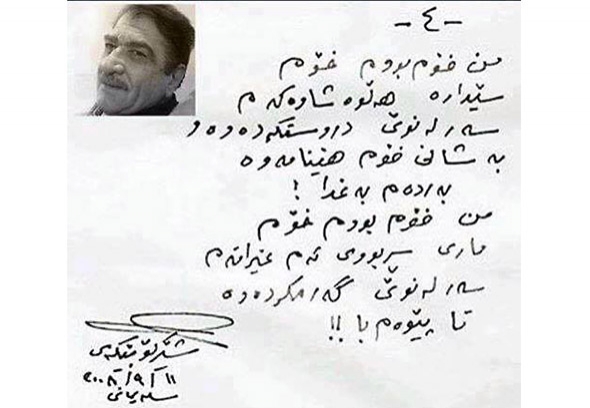 -٤-
من خۆم بووم خۆم
سێدارە هەڵوەشاوەکەم
سەر لە نوێ دروستکردەوە و
بە شانی خۆم هێنامەوە
بەردەم بەغدا !
من خۆم بووم خۆم
ماری سڕبووی ئەم عێراقەم
سەر لە نوێ گەرمکردەوە
تا پێوەم با !!
شێرکۆ بێکەس
٢٠٠٨/٩/١١
سلێمانی